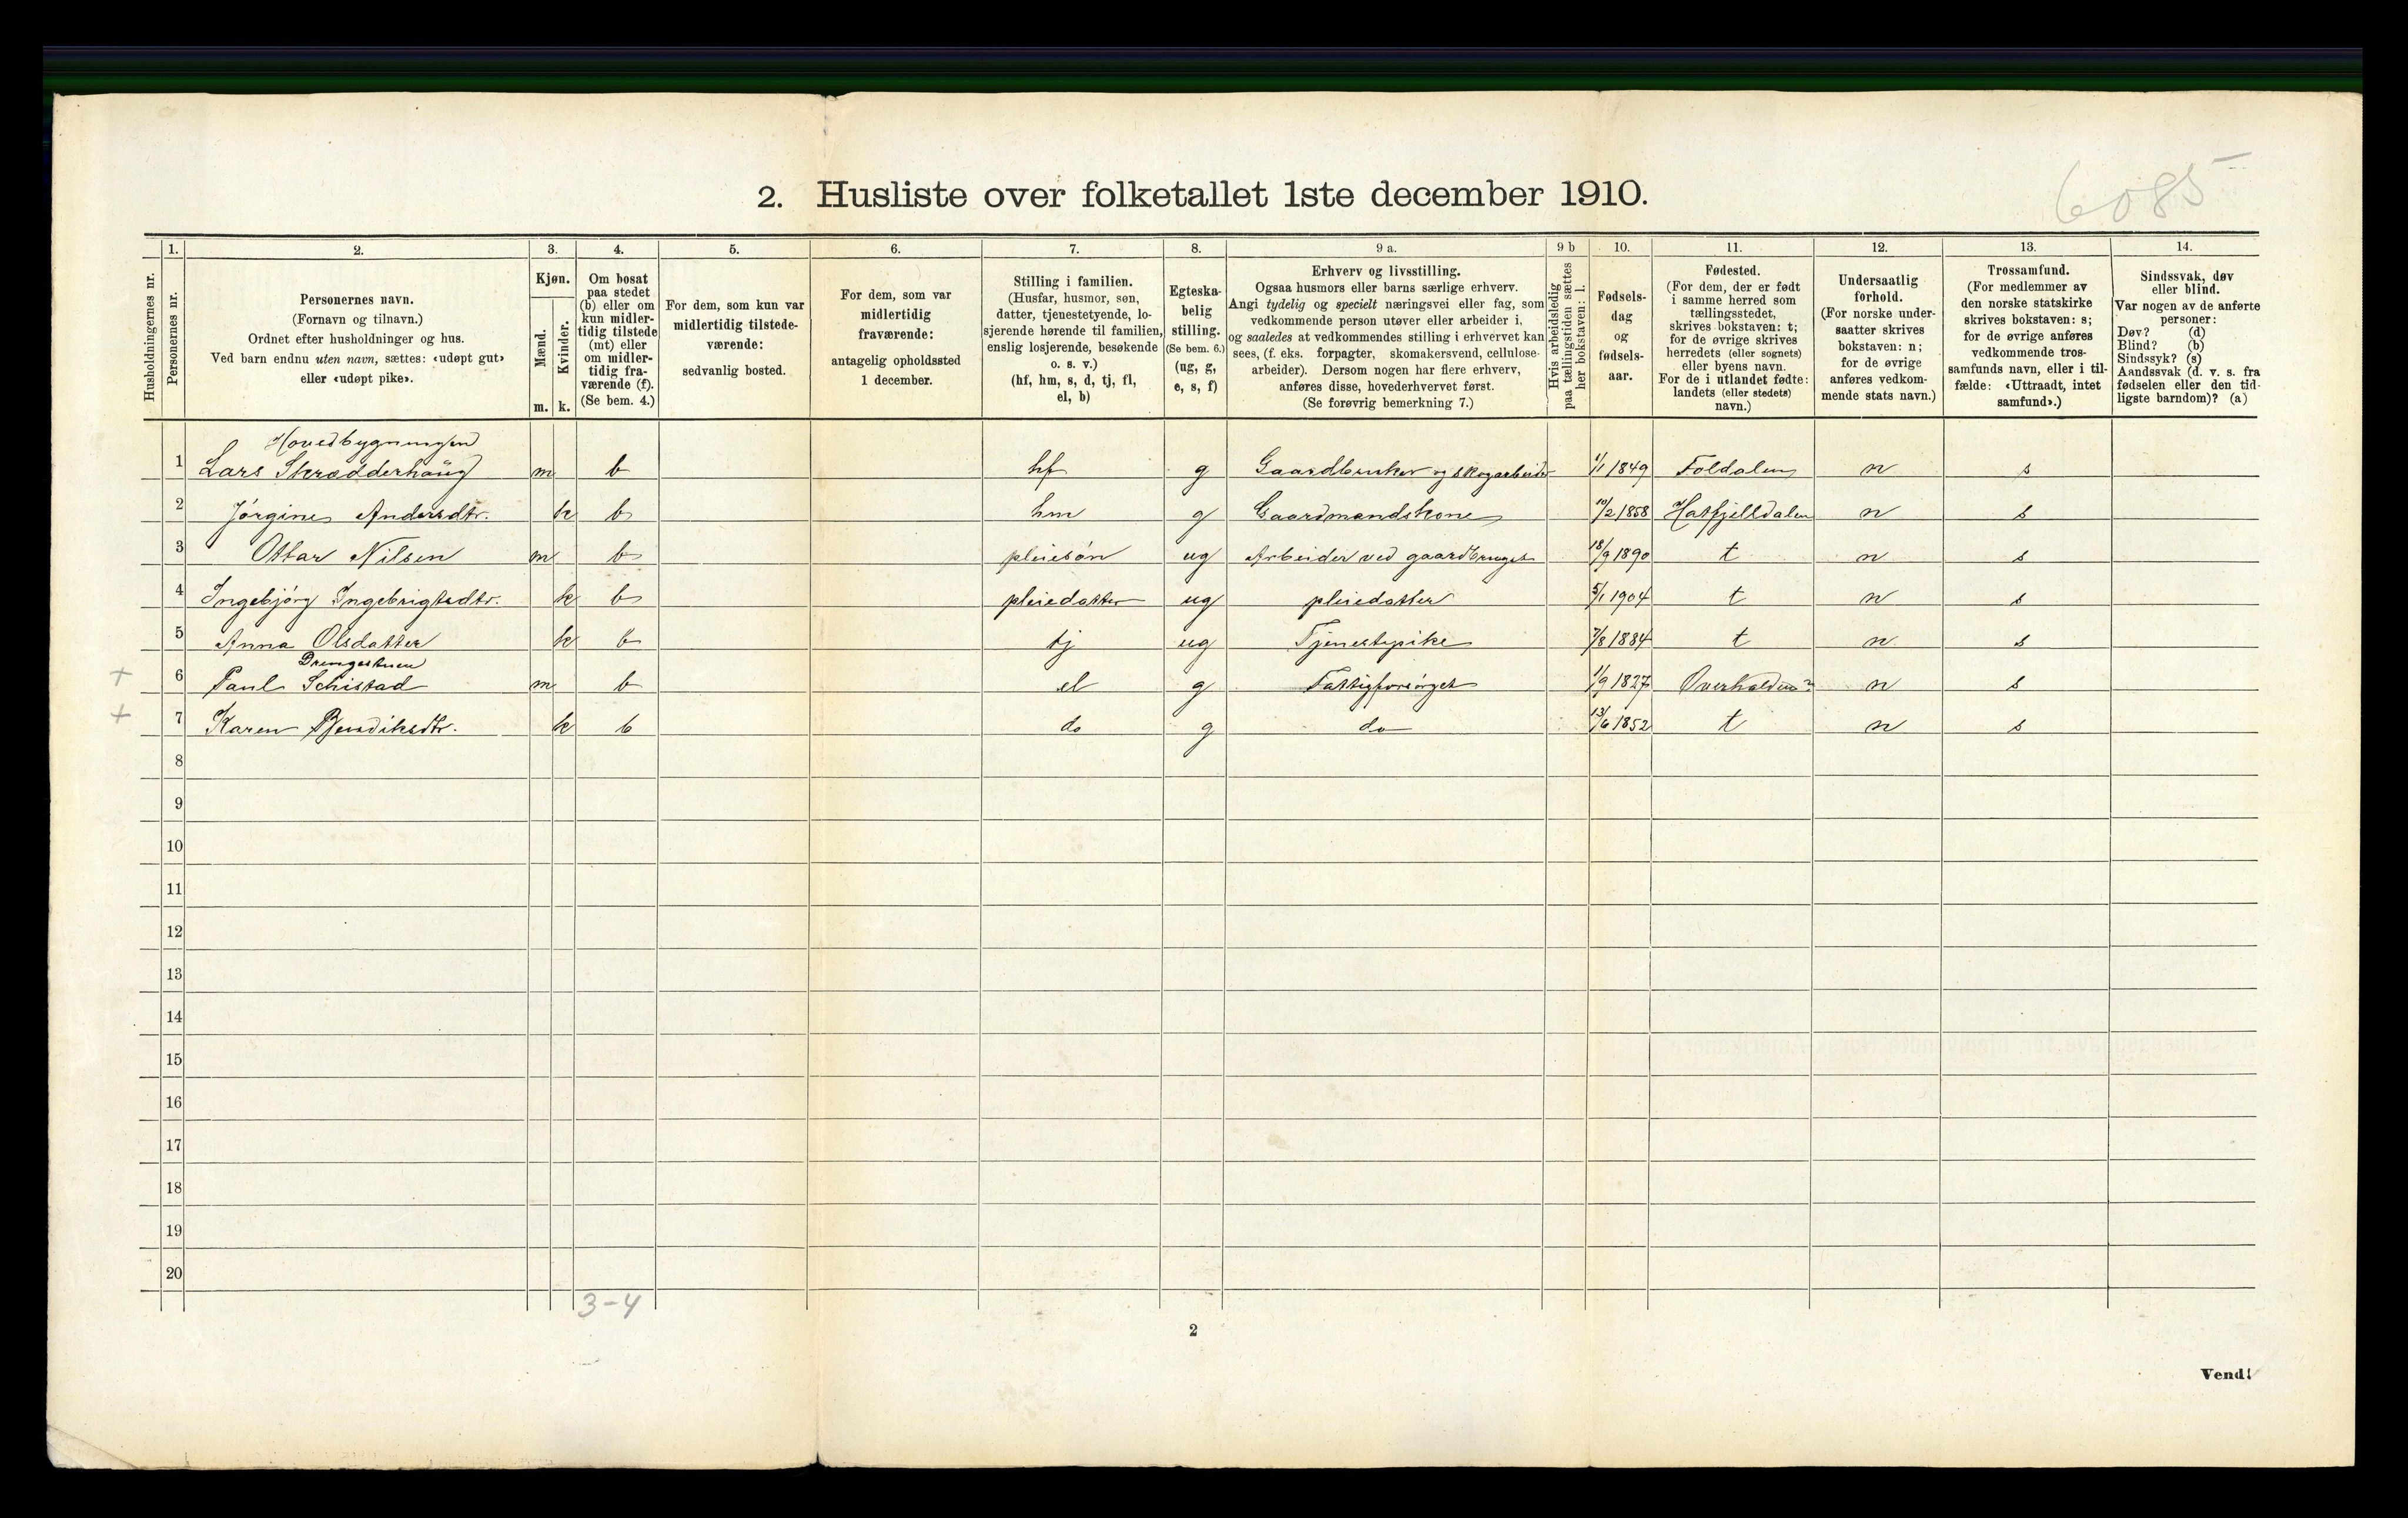 2. Husliste over folketallet 1ste december 1910.
6085
Husholdningernes nr.
1.
Personernes nr.
2.
Personernes navn.
(Fornavn og tilnavn.)
Ordnet efter husholdninger og hus.
Ved barn endnu uten navn, sættes: «udøpt gut»
eller «udøpt pike».
3.
Kjøn.
Mænd.
m.
Kvinder.
k.
4.
Om bosat
paa stedet
(b) eller om
kun midler-
tidig tilstede
(mt) eller
om midler-
tidig fra-
værende (f).
(Se bem. 4.)
5.
For dem, som kun var
midlertidig tilstede-
værende:
sedvanlig bosted.
6.
For dem, som var
midlertidig
fraværende:
antagelig opholdssted
1 december.
7.
Stilling i familien.
(Husfar, husmor, søn,
datter, tjenestetyende, lo-
sjerende hørende til familien,
enslig losjerende, besøkende
o. s. v.)
(hf, hm, s, d, tj, fl,
el, b)
8.
Egteska-
belig
stilling.
(Se bem. 6.)
(ug, g,
e, s, f)
9 a.
Erhverv og livsstilling.
Ogsaa husmors eller barns særlige erhverv.
Angi tydelig og specielt næringsvei eller fag, som
vedkommende person utøver eller arbeider i,
og saaledes at vedkommendes stilling i erhvervet kan
sees, (f. eks. forpagter, skomakersvend, cellulose-
arbeider). Dersom nogen har flere erhverv,
anføres disse, hovederhvervet først.
(Se forøvrig bemerkning 7.)
9 b
Hvis arbeidsledig
paa tællingstiden sættes
her bokstaven: l.
10.
Fødsels-
dag
og
fødsels-
aar.
11.
Fødested.
(For dem, der er født
i samme herred som
tællingsstedet,
skrives bokstaven: t;
for de øvrige skrives
herredets (eller sognets)
eller byens navn.
For de i utlandet fødte:
landets (eller stedets)
navn.)
12.
Undersaatlig
forhold.
(For norske under-
saatter skrives
bokstaven: n;
for de øvrige
anføres vedkom-
mende stats navn.)
13.
Trossamfund.
(For medlemmer av
den norske statskirke
skrives bokstaven: s;
for de øvrige anføres
vedkommende tros-
samfunds navn, eller i til-
fælde: «Uttraadt, intet
samfund».)
14.
Sindssvak, døv
eller blind.
Var nogen av de anførte
personer:
Døv? (d)
Blind? (b)
Sindssyk? (s)
Aandssvak (d. v. s. fra
fødselen eller den tid-
ligste barndom)? (a)
Hovedbygningen
1 Lars Skrædderhaug m b hf g Gaardbruker og skogarbeider 1/1 1849 Foldalen n s
2 Jørgine Andersdtr. k b hm g Gaardmandskone 10/2 1858 Hatfjelldalen n s
3 Ottar Nilsen m b pleiesøn ug Arbeider ved gaardbruget 18/9 1890 t n s
4 Ingebjørg Ingebrigtsdtr. k b pleiedatter ug pleiedatter 5/1 1904 t n s
5 Anna Olsdatter k b tj ug Tjenestepike 7/8 1884 t n s
Drengestuen
+ 6 Paul Schistad m b el g Fattigforsørget 1/9 1827 Overhalden? n s
+ 7 Karen Bendiksdtr. k b do g do 13/6 1852 t n s
8
9
10
11
12
13
14
15
16
17
18
19
20
3-4
2
Vend!